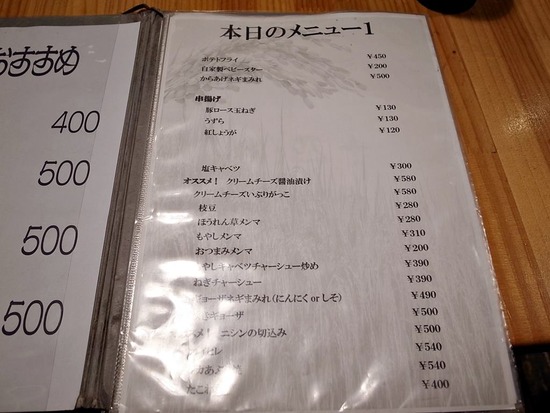 おすすめ
400
500
500
500
本日のメニュー1
ポテトフライ ¥450
自家製ベビースター ¥200
からあげネギまみれ ¥500
串揚げ
豚ロース玉ねぎ ¥130
うずら ¥130
紅しょうが ¥120
塩キャベツ ¥300
オススメ! クリームチーズ醤油漬け ¥580
クリームチーズいぶりがっこ ¥580
枝豆 ¥280
ほうれん草メンマ ¥280
もやしメンマ ¥310
おつまみメンマ ¥200
やしキャベツチャーシュー炒め ¥390
ねぎチャーシュー ¥390
ギョーザネギまみれ(にんにくorしそ) ¥490
ギョーザ ¥500
スメ! ニシンの切込み ¥500
¥540
¥540
たこ ¥400